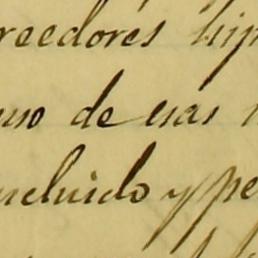 reedores hip
uso de esas
ncluido y pe